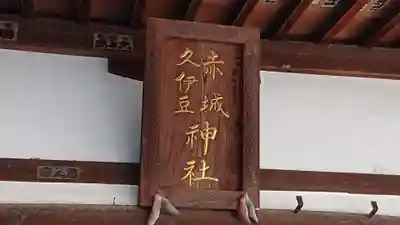 赤城
久伊豆
神社